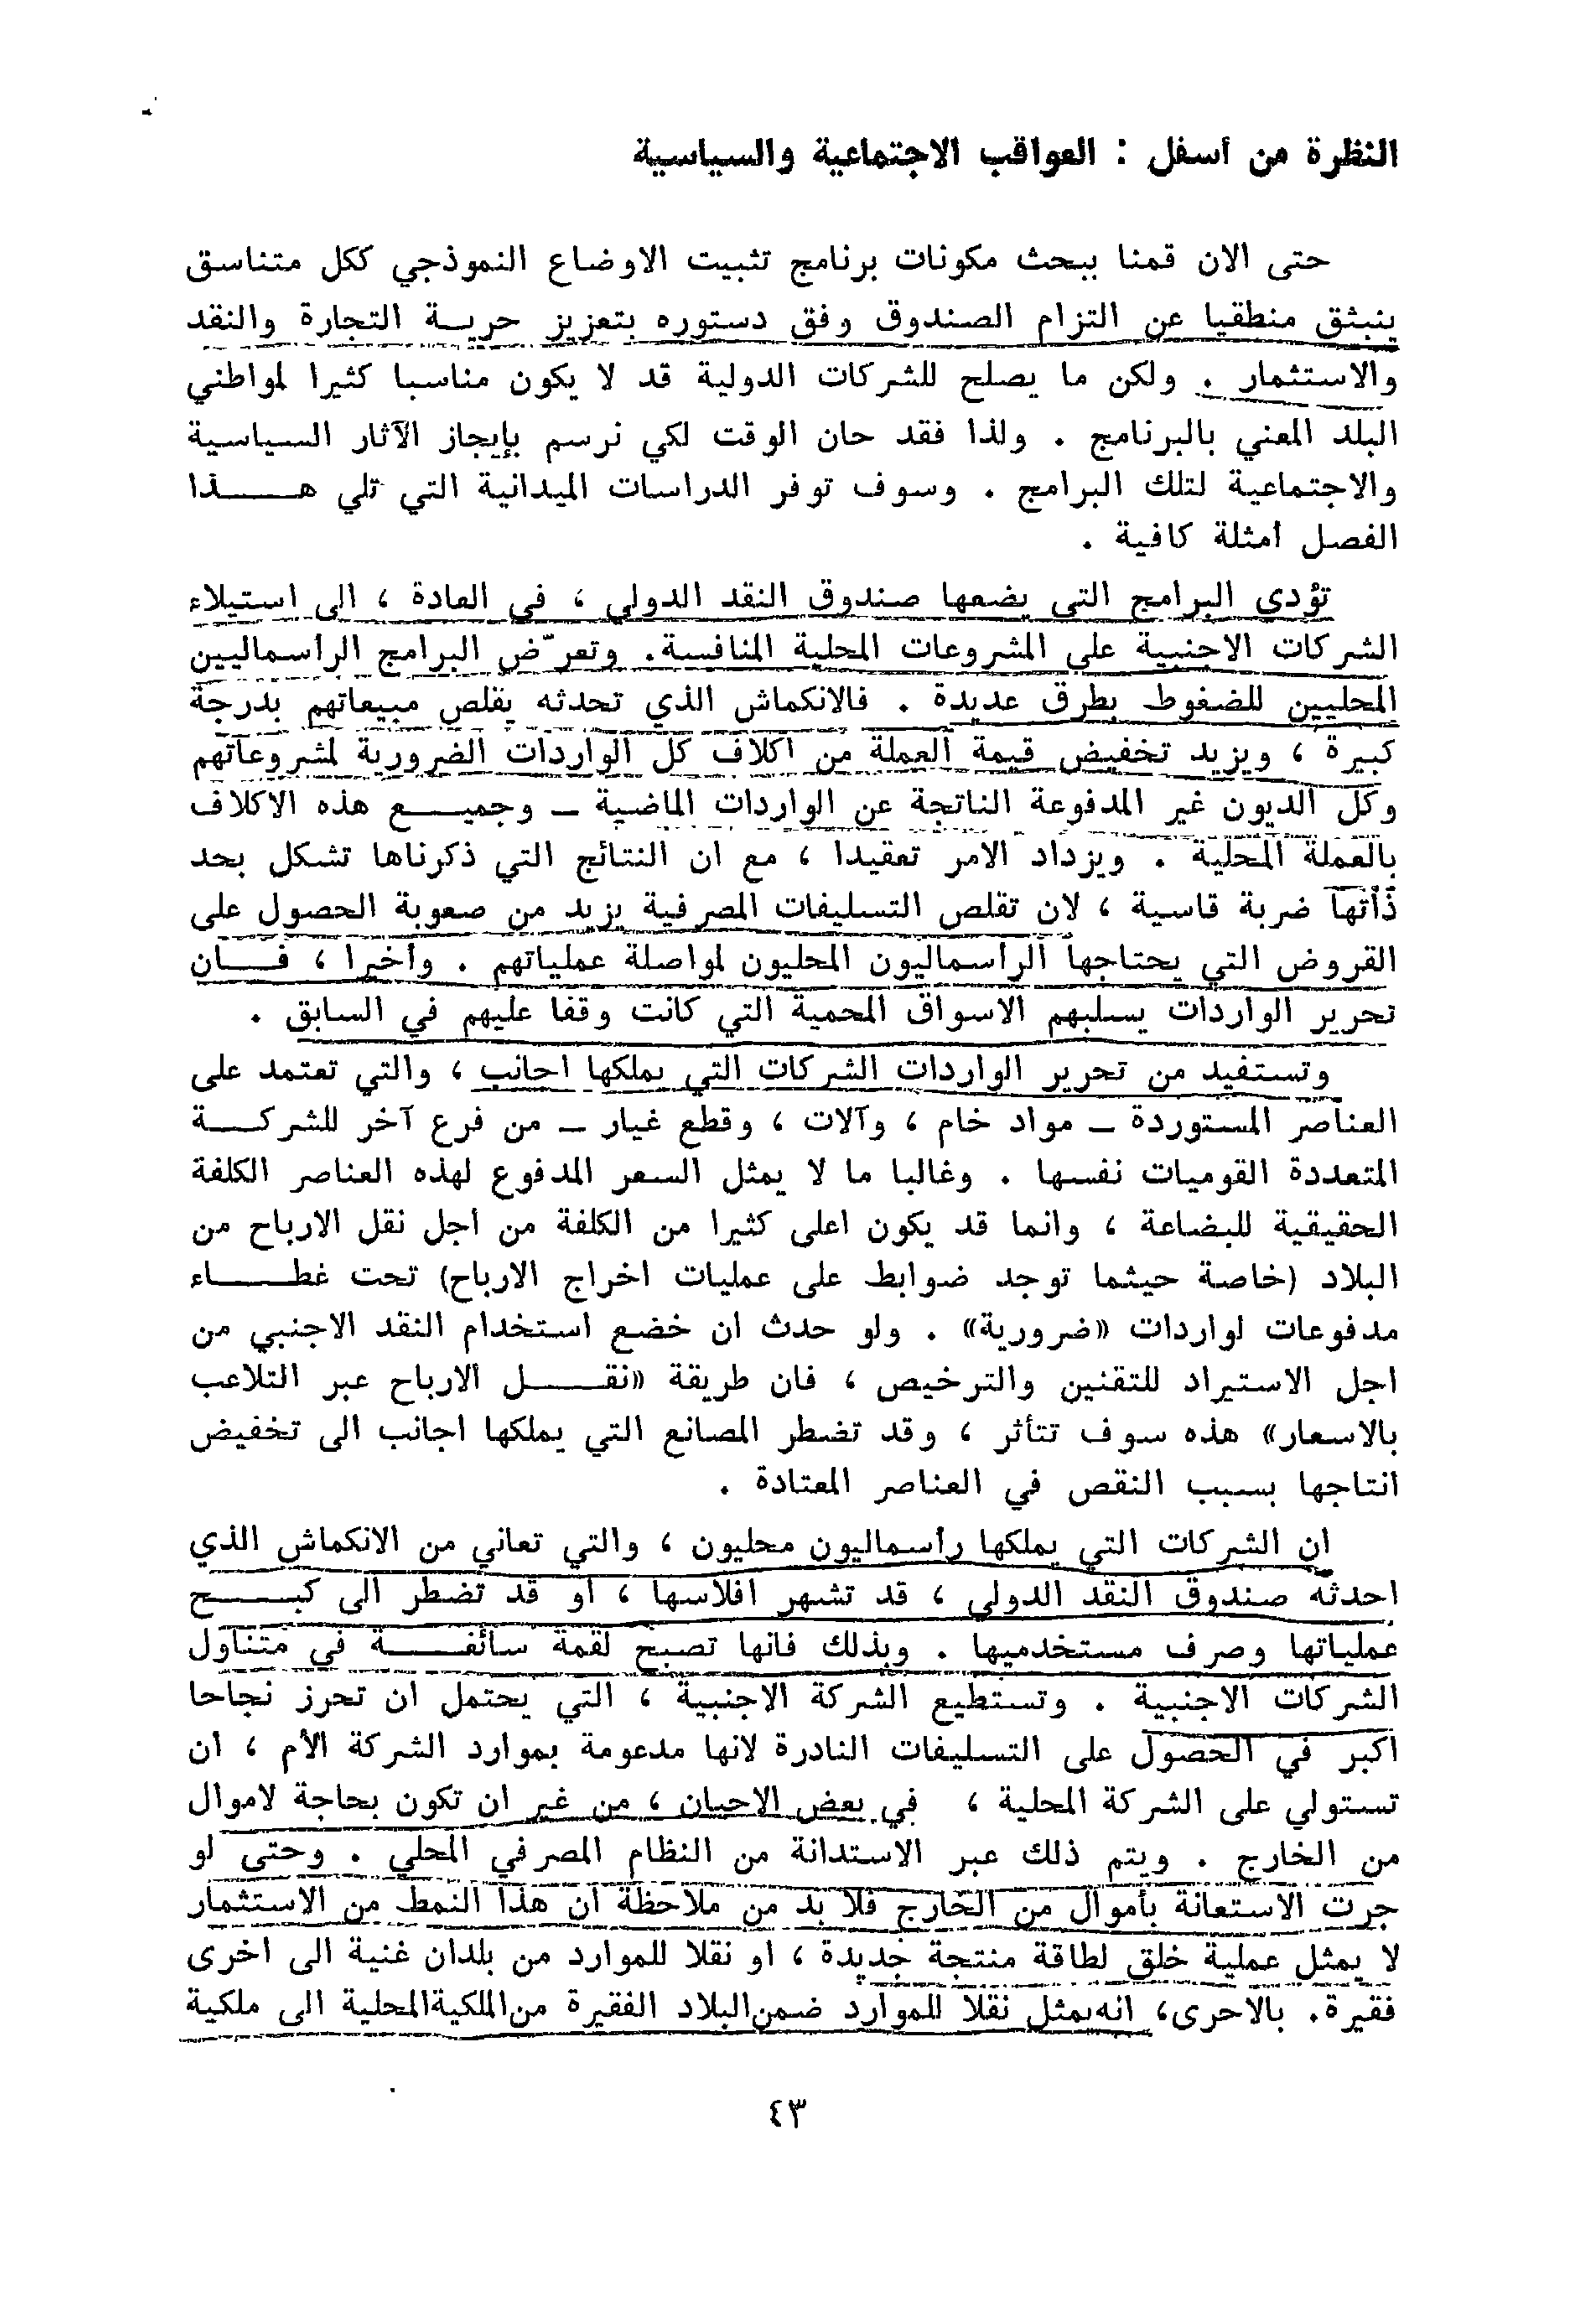 النظرة من أسفل : العواقب الاجتماعية والسياسية
حتى الان قمنا ببحث مكونات برنامج تثبيت الاوضاع النموذجي ككل متناسق
ينبثق منطقيا عن التزام الصندوق وفق دستوره بتعزيز حرية التجارة والنقد
والاستثمار . ولكن ما يصلح للشركات الدولية قد لا يكون مناسبا كثيرا لمواطني
البلد المعني بالبرنامج . ولذا فقد حان الوقت لكي نرسم بإيجاز الآثار السياسية
والاجتماعية لتلك البرامج . وسوف توفر الدراسات الميدانية التي تلي هذا
الفصل أمثلة كافية .
تؤدي البرامج التي يضعها صندوق النقد الدولي ، في العادة ، الى استيلاء
الشركات الاجنبية على المشروعات المحلية المنافسة. وتعرّض البرامج الرأسماليين
المحليين للضغوط بطرق عديدة . فالانكماش الذي تحدثه يقلص مبيعاتهم بدرجة
كبيرة ، ويزيد تخفيض قيمة العملة من اكلاف كل الواردات الضرورية لمشروعاتهم
وكل الديون غير المدفوعة الناتجة عن الواردات الماضية – وجميع هذه الاكلاف
بالعملة المحلية . ويزداد الامر تعقيدا ، مع ان النتائج التي ذكرناها تشكل بحد
ذاتها ضربة قاسية ، لان تقلص التسليفات المصرفية يزيد من صعوبة الحصول على
القروض التي يحتاجها الرأسماليون المحليون لمواصلة عملياتهم . وأخيرا ، فان
تحرير الواردات يسلبهم الاسواق المحمية التي كانت وقفا عليهم في السابق .
وتستفيد من تحرير الواردات الشركات التي يملكها اجانب ، والتي تعتمد على
العناصر المستوردة – مواد خام ، وآلات ، وقطع غيار – من فرع آخر للشركة
المتعددة القوميات نفسها . وغالبا ما لا يمثل السعر المدفوع لهذه العناصر الكلفة
الحقيقية للبضاعة ، وانما قد يكون اعلى كثيرا من الكلفة من اجل نقل الارباح من
البلاد (خاصة حيثما توجد ضوابط على عمليات اخراج الارباح) تحت غطاء
مدفوعات لواردات «ضرورية» . ولو حدث ان خضع استخدام النقد الاجنبي من
اجل الاستيراد للتقنين والترخيص ، فان طريقة «نقل الارباح عبر التلاعب
بالاسعار» هذه سوف تتأثر ، وقد تضطر المصانع التي يملكها اجانب الى تخفيض
انتاجها بسبب النقص في العناصر المعتادة .
ان الشركات التي يملكها رأسماليون محليون ، والتي تعاني من الانكماش الذي
احدثه صندوق النقد الدولي ، قد تشهر افلاسها ، أو قد تضطر الى كبح
عملياتها وصرف مستخدميها . وبذلك فانها تصبح لقمة سائغة في متناول
الشركات الاجنبية . وتستطيع الشركة الاجنبية ، التي يحتمل ان تحرز نجاحا
اكبر في الحصول على التسليفات النادرة لانها مدعومة بموارد الشركة الأم ، ان
تستولي على الشركة المحلية ، في بعض الاحيان ، من غير ان تكون بحاجة لاموال
من الخارج . ويتم ذلك عبر الاستدانة من النظام المصرفي المحلي . وحتى لو
جرت الاستعانة بأموال من الخارج فلا بد من ملاحظة ان هذا النمط من الاستثمار
لا يمثل عملية خلق لطاقة منتجة جديدة ، او نقلا للموارد من بلدان غنية الى اخرى
فقيرة. بالاحرى، انه يمثل نقلا للموارد ضمن البلاد الفقيرة من الملكية المحلية الى ملكية
٤٣